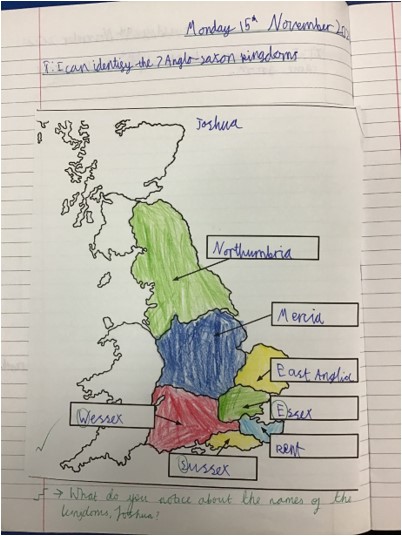 Monday 15th November
I: I can identify the 7 Anglo-saxon kingdoms
Joshua
Northumbria
Mercia
East Anglia
Wessex
Essex
Kent
Sussex
→ What do you notice about the names of the
kingdoms, Joshua?